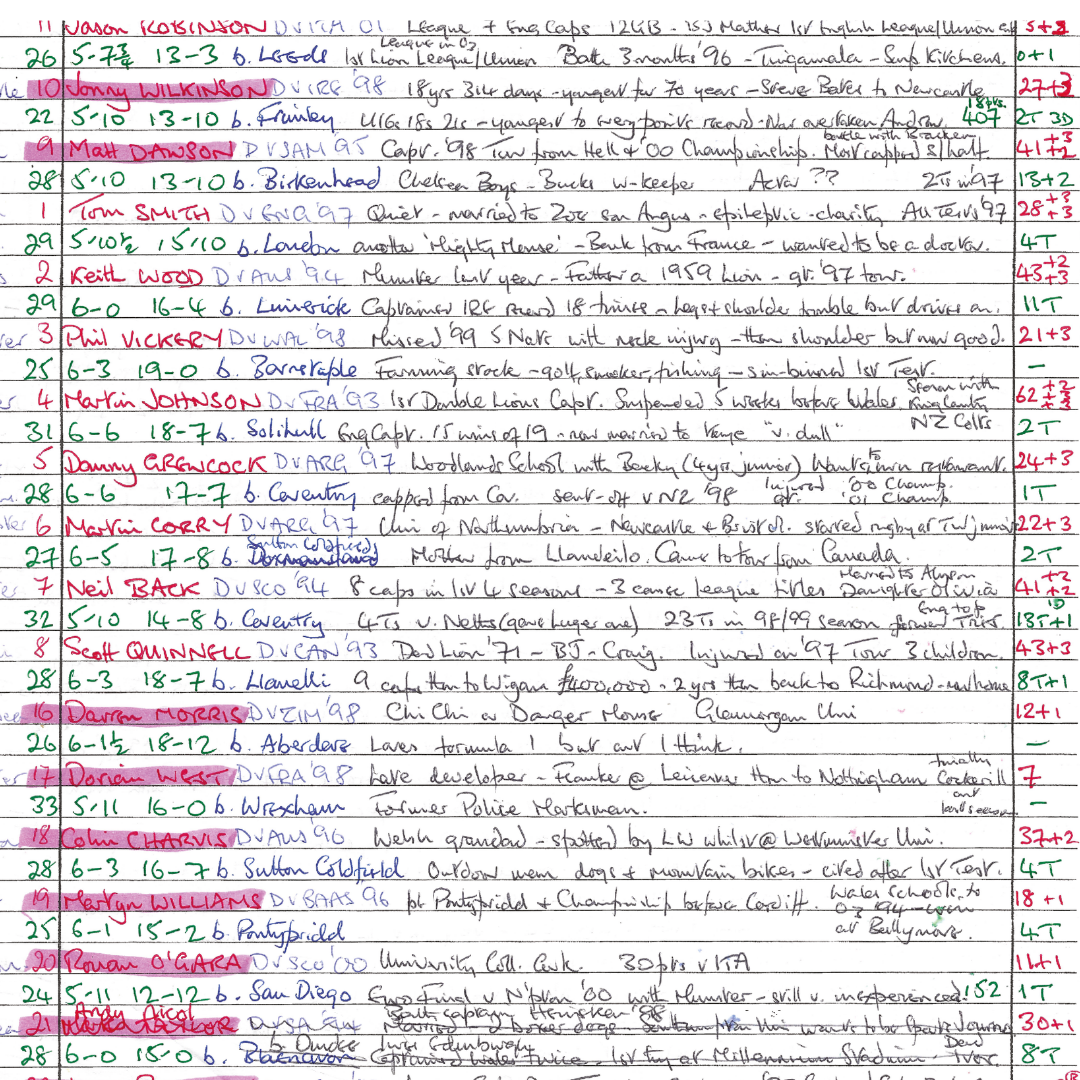 11 Jason ROBINSON D v ITA 01 League + Eng Caps 12GB - 1st Mother 1st English League/Union 5+2
League in Oz
26 5-7¾ 13-3 b. Leeds 1st Lion League/Union Bath 3 months '96 - - Kitchens. 0+1
10 Jonny WILKINSON D v IRE '98 18yrs 314 days - youngest for 70 years - Steve Bates to Newcastle 27+3
18 pts.
22 5-10 13-10 b. Frimley U16s 18s 21s - youngest to every points record - Has overtaken Andrew. 407 2T 3D
battle with Bracken +3
9 Matt DAWSON D v SAM '95 Capt. '98 Tour from Hell & '00 Championship. Most capped s/half. 41+2
28 5-10 13-10 b. Birkenhead Chelsea Boys - Bucks w-keeper Actor ?? 2Ts in '97 13+2
1 Tom SMITH D v ENG '97 Quiet - married to Zoe son Angus - epileptic - charity All Tests '97 28+3+3
29 5-10½ 15-10 b. London another 'Mighty Mouse' - Back from France - wanted to be a doctor. 4T
2 Keith WOOD D v AUS '94 Munster last year - Father a 1959 Lion - gt. '97 tour. 43+2+3
29 6-0 16-4 b. Limerick Captained IRE record 18 times - leg & shoulder trouble but drives on. 11T
3 Phil VICKERY D v WAL '98 Missed '99 5 Nats with neck injury - then shoulder but now good. 21+3
25 6-3 19-0 b. Barnstaple Farming stock - golf, smoker, fishing - sin-binned 1st Test. -
4 Martin JOHNSON D v FRA '93 1st Double Lions Capt. Suspended 5 weeks before Wales. 62+2+3+3
31 6-6 18-7 b. Solihull Eng Capt. 15 wins of 19 - now married to Kay "v. dull" NZ Colts 2T
5 Danny GREWCOCK D v ARG '97 Woodlands School with Becky (4yr junior) Wants to win 24+3
Injured '00 Champ.
28 6-6 17-7 b. Coventry capped from Cov. sent-off v NZ '98 gt. '01 Champ. 1T
6 Martin CORRY D v ARG '97 Uni of Northumbria - Newcastle & Bristol. started rugby at TW juniors 22+3
Sutton Coldfield
27 6-5 17-8 b. Mother from Llandeilo. Came to tour from Canada. 2T
Married to Alyson
7 Neil BACK D v SCO '94 8 caps in 1st 4 seasons - 3 league titles Daughter Olivia 41+3+2
Eng top
32 5-10 14-8 b. Coventry 4Ts v. Neths (gave Luger one) 23Ts in 98/99 season forward Tries 13T+1 1D
8 Scott QUINNELL D v CAN '93 Dad Lion '71 - BJ - Craig. Injured on '97 Tour 3 children. 43+3
28 6-3 18-7 b. Llanelli 9 caps then to Wigan £400,000 - 2 yrs then back to Richmond - now home 8T+1
16 Darren MORRIS D v ZIM '98 Chi Chi or Danger Mouse Glamorgan Uni 12+1
26 6-1½ 18-12 b. Aberdare Loves formula 1 but not 1 think. -
finally
17 Dorian WEST D v FRA '98 Late developer - Flanker @ Leicester then to Nottingham Cockerill 7
out
33 5-11 16-0 b. Wrexham Former Police Marksman. last season -
18 Colin CHARVIS D v AUS '96 Welsh grandad - spotted by LW whilst @ Westminster Uni. 37+2
28 6-3 16-7 b. Sutton Coldfield Outdoor men dogs & mountain bikes - cited after 1st Test. 4T
19 Martyn WILLIAMS D v BAAS 96 pt Pontypridd & Championship before Cardiff. Wales schools to 18+1
Oz '94 - won
25 6-1 15-2 b. Pontypridd at Ballymore. 4T
20 Ronan O'GARA D v SCO '00 University Coll. Cork. 30pts v ITA 11+1
24 5-11 12-12 b. San Diego Euro Final v N'pton '00 with Munster - still v. inexperienced! 152 1T
Andy Nicol Scott captain Heineken '98
21 Mark TAYLOR D v SA Married - 2 boxer dogs - Uni wants to be Sports Journo 30+1
b Dundee lives Edinburgh Dead
28 6-0 15-0 b. Blaenavon Captained Wales twice - 1st try at Millennium Stadium - 8T